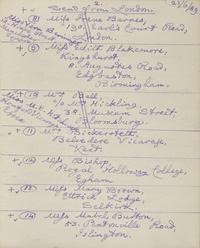 2.
21/6/09
Send from London.
+ Miss Irene Barnes,
130 Earl's Court Road,
London.
+ (9) Miss Edith Blakemore,
Kingshurst,
Augustus Road,
Edgbaston,
Birmingham.
Miss Ball
c/o Mr Hickling
38 Museum Street
Bloomsbury.
+ (11) Miss Bickersteth
Belvedere Vicarage,
Kent.
Miss Bishop,
Royal Holloway College,
Egham
Miss Mary Brown,
Ettrick Lodge,
Selkirk.
Miss Mabel Button,
53. Pentonville Road,
Islington.